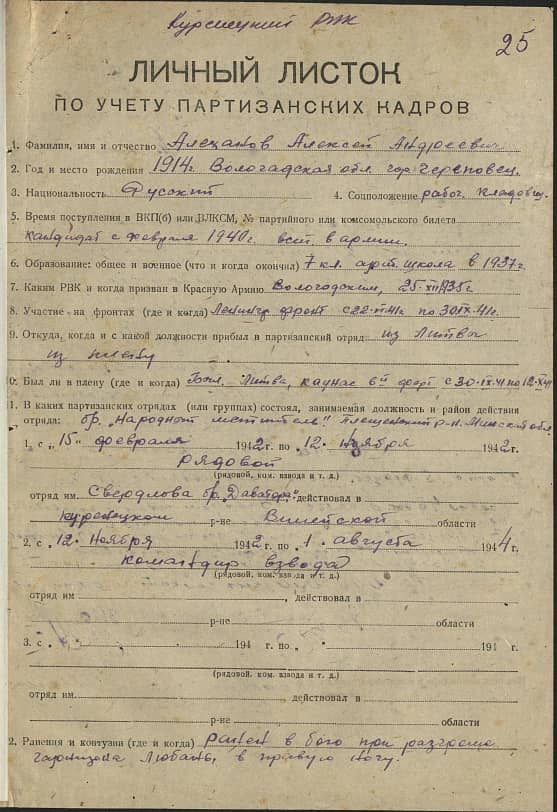 Куренецкий РК
25
ЛИЧНЫЙ ЛИСТОК
ПО УЧЕТУ ПАРТИЗАНСКИХ КАДРОВ
1. Фамилия, имя и отчество Алецанов Алексей Андреевич
2. Год и место рождения 1914г. Вологадская обл. гор. Череповец.
3. Национальность Русский 4. Соцположение рабоч. Кладовщ.
5. Время поступления в ВКП(б) или ВЛКСМ, № партийного или комсомольского билета
кандидат с февраля 1940г. вст. в армии.
6. Образование: общее и военное (что и когда окончил) 7 кл. арт. школа в 1937г.
7. Каким РВК и когда призван в Красную Армию Вологодским, 25-XII 1935г.
8. Участие на фронтах (где и когда) Ленингр фронт с 22-VI 41г. по 30 IX-41г.
9. Откуда, когда и с какой должности прибыл в партизанский отряд из Литвы
из плена
0. Был ли в плену (где и когда) Был. Литва, Каунас 6й форт с 30-IX.41 по 12-XII
1. В каких партизанских отрядах (или группах) состоял, занимаемая должность и район действия
отряда: бр. „Народный мститель" Плещеницкий р-н. Минской обл
1. с „15" февраля 1942 г. по „12" Ноября 1942 г.
рядовой
(рядовой, ком. взвода и т. д.)
отряд им. Свердлова бр. „Даватора", действовал в
Куренецком р-не Вилейской области
2. с „12" Ноября 1942 г. по „1" августа 1944 г.
командир взвода
(рядовой, ком. взвода и т. д.)
отряд им. , действовал в
р-не области
3. с „ " 194 г. по „ " 194 г.
(рядовой, ком. взвода и т. д.)
отряд им. , действовал в
р-не области
2. Ранения и контузии (где и когда) Ранен в бою при разгроме
гарнизона Любань, в правую ногу.